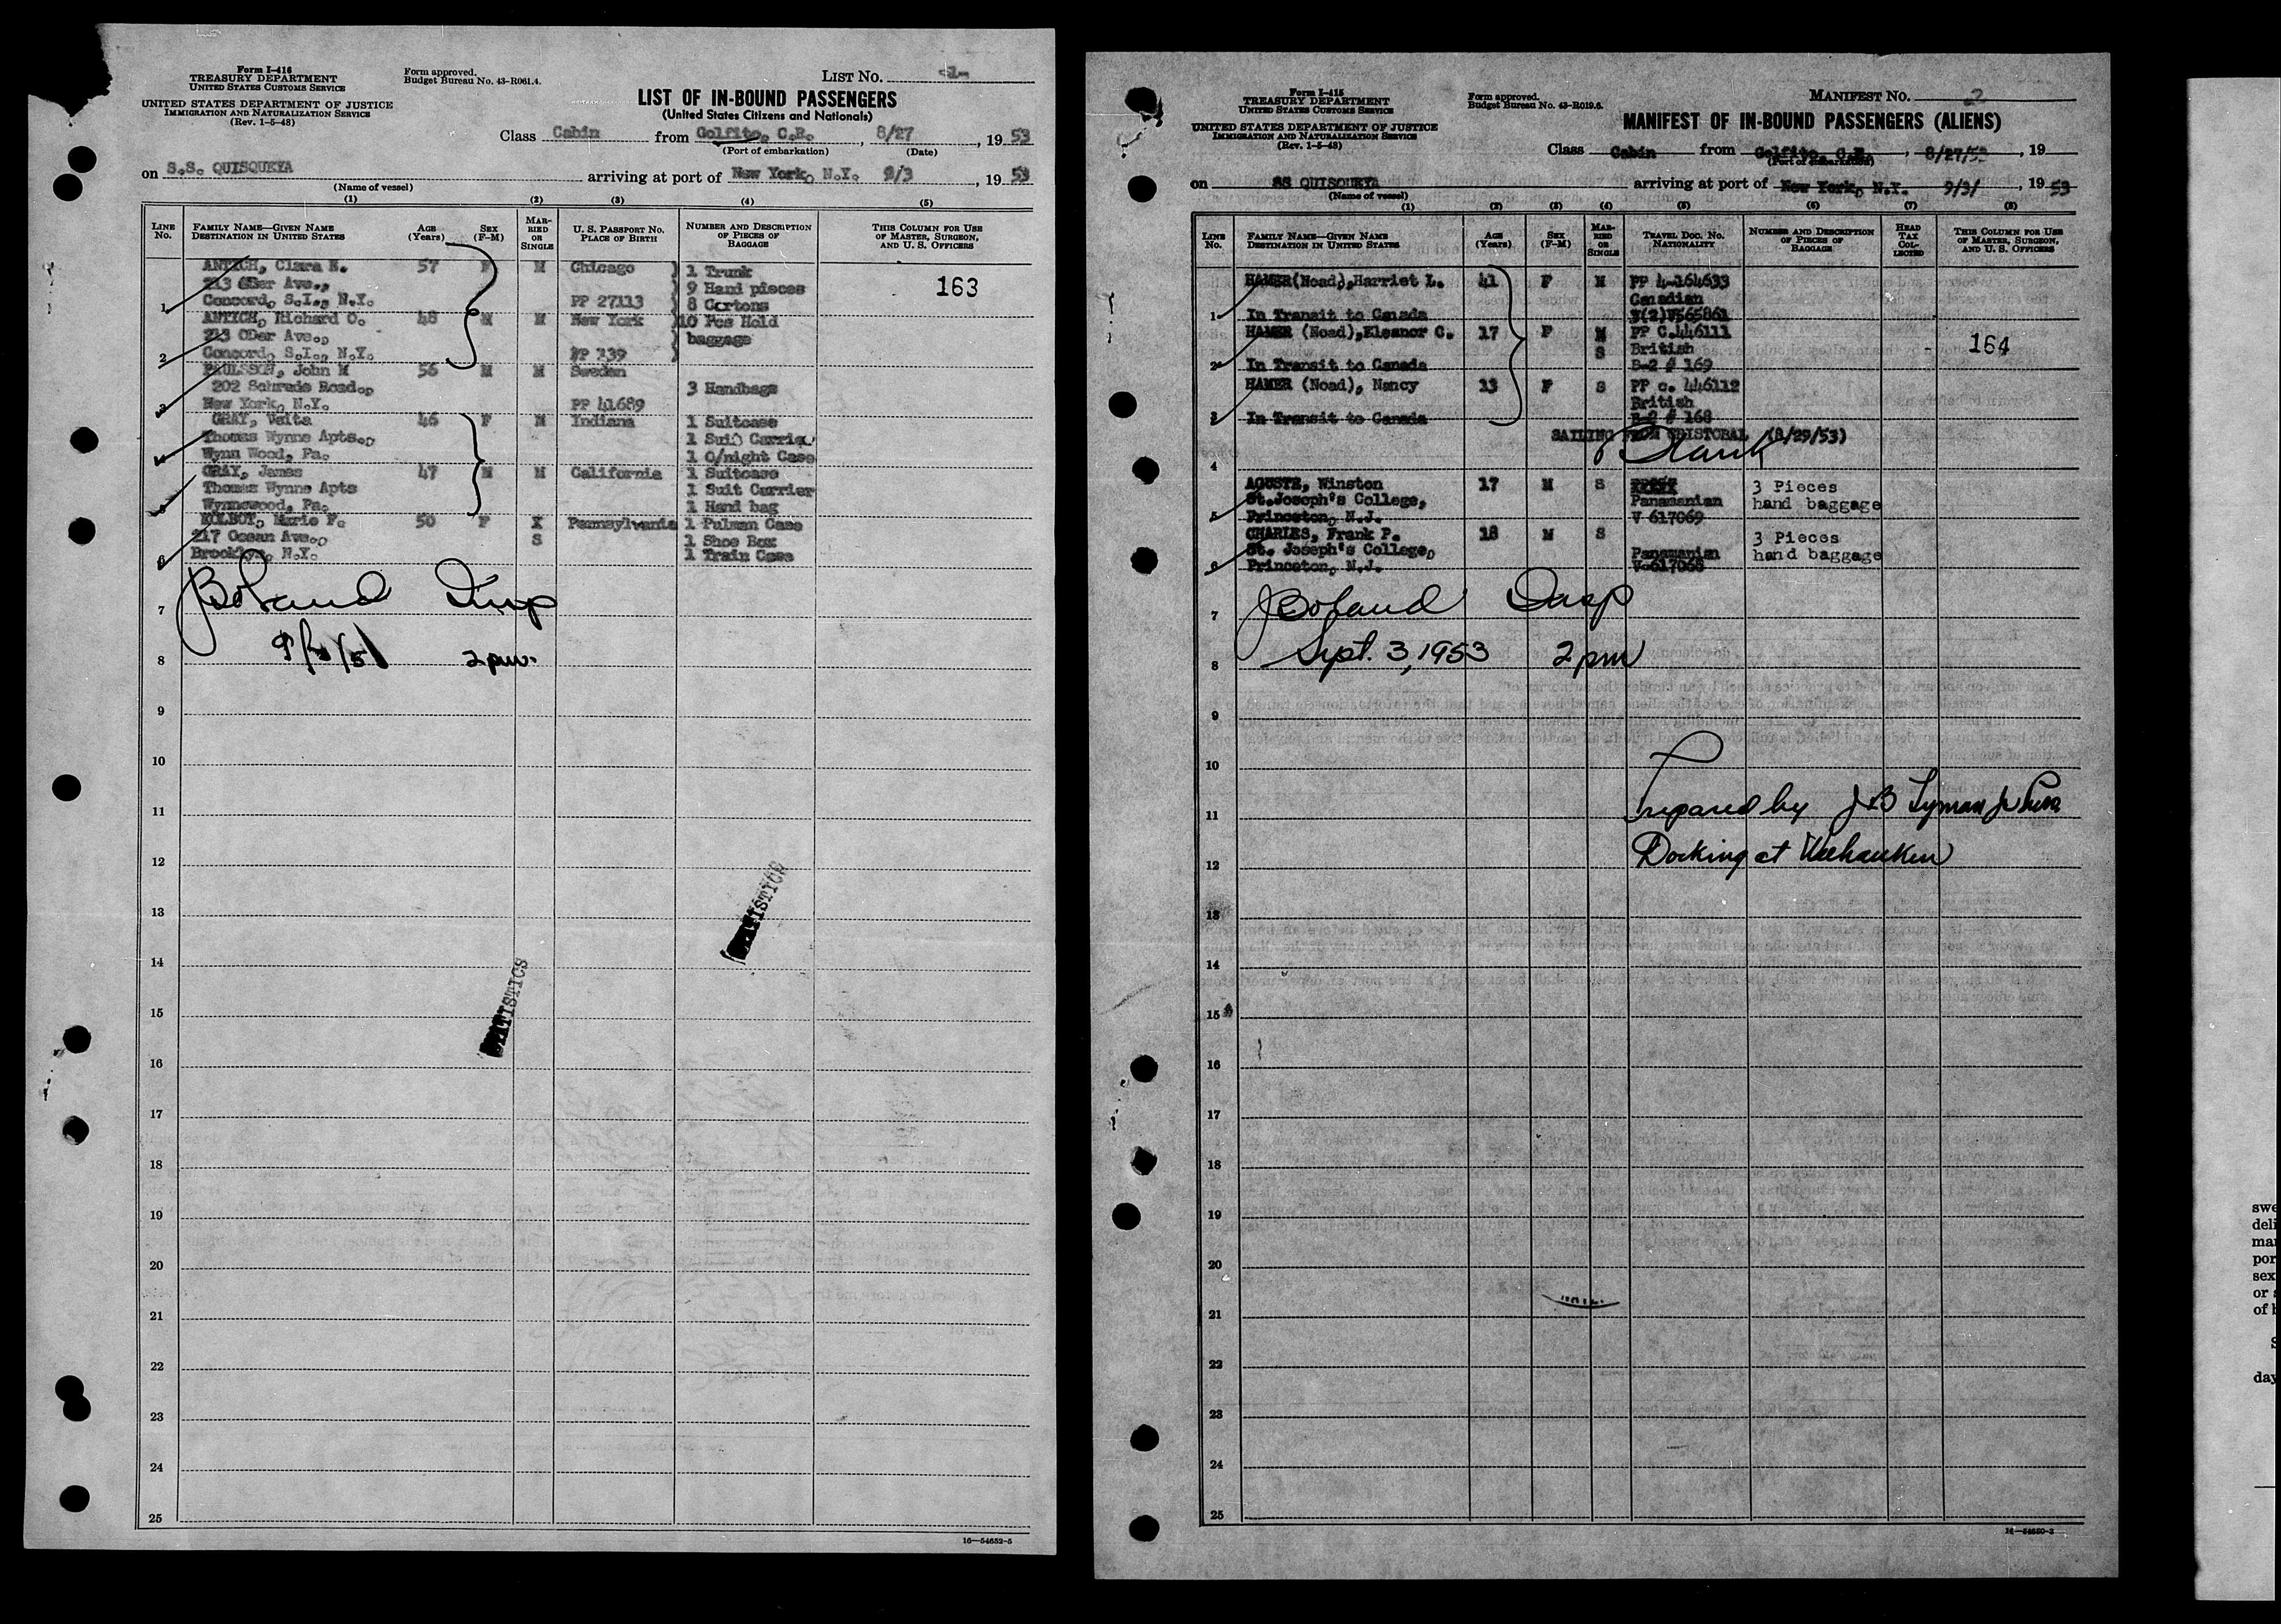 Form I-416
TREASURY DEPARTMENT
UNITED STATES CUSTOMS SERVICE
UNITED STATES DEPARTMENT OF JUSTICE
IMMIGRATION AND NATURALIZATION SERVICE
(Rev. 1-5-48)
Form approved.
Budget Bureau No. 43-R061.4.
LIST NO. -1-
LIST OF IN-BOUND PASSENGERS
(United States Citizens and Nationals)
Class Cabin from Golfito, C.R. , 8/27 , 19 53
(Port of embarkation) (Date)
on S.S. QUISQUEYA arriving at port of New York, N.Y. 9/3 , 19 53
(Name of vessel)
(1) (2) (3) (4) (5)
LINE No. FAMILY NAME—GIVEN NAME DESTINATION IN UNITED STATES AGE (Years) SEX (F-M) MARRIED OR SINGLE U. S. PASSPORT NO. PLACE OF BIRTH NUMBER AND DESCRIPTION OF PIECES OF BAGGAGE THIS COLUMN FOR USE OF MASTER, SURGEON, AND U. S. OFFICERS
ANTICH, Clara E. 57 F M Chicago 1 Trunk
213 ODer Ave., 9 Hand pieces 163
1 Concord, S.I., N.Y. PP 27113 8 Cartons
ANTICH, Richard O. 48 M M New York 10 Pcs Hold
213 ODer Ave., baggage
2 Concord, S.I., N.Y. PP 139
PAULSSON, John M 56 M M Sweden
202 Schrade Road., 3 Handbags
3 New York, N.Y. PP 41689
GRAY, Velta 46 F M Indiana 1 Suitcase
Thomas Wynne Apts., 1 Suit Carrier
4 Wynn Wood, Pa. 1 O/night Case
GRAY, James 47 M M California 1 Suitcase
Thomas Wynne Apts 1 Suit Carrier
5 Wynnewood, Pa. 1 Hand bag
KOLBOT, Marie F. 50 F X Pennsylvania 1 Pulman Case
217 Ocean Ave., S 1 Shoe Box
6 Brooklyn, N.Y. 1 Train Case
JBoland Insp
7
8 2 pm.
9
10
11
12
13
STATISTICS
14
STATISTICS
15
16
17
18
19
20
21
22
23
24
25
16—54652-5
Form I-415
TREASURY DEPARTMENT
UNITED STATES CUSTOMS SERVICE
UNITED STATES DEPARTMENT OF JUSTICE
IMMIGRATION AND NATURALIZATION SERVICE
(Rev. 1-5-48)
Form approved.
Budget Bureau No. 43-R019.6.
MANIFEST NO. 2
MANIFEST OF IN-BOUND PASSENGERS (ALIENS)
Class Cabin from Golfito, C.R. , 8/27/53 , 19
(Port of embarkation)
on SS QUISQUEYA arriving at port of New York, N.Y. 9/3/ , 19 53
(Name of vessel)
(1) (2) (3) (4) (5) (6) (7) (8)
LINE No. FAMILY NAME—GIVEN NAME DESTINATION IN UNITED STATES AGE (Years) SEX (F-M) MARRIED OR SINGLE TRAVEL DOC. NO. NATIONALITY NUMBER AND DESCRIPTION OF PIECES OF BAGGAGE HEAD TAX COLLECTED THIS COLUMN FOR USE OF MASTER, SURGEON, AND U. S. OFFICERS
HAMER (Noad), Harriet L. 41 F M PP 4-164633
Canadian
1 In Transit to Canada V(2)V565861
HAMER (Noad), Eleanor C. 17 F M PP C.446111
S British 164
2 In Transit to Canada B-2 # 169
HAMER (Noad), Nancy 13 F S PP c. 446112
British
3 In Transit to Canada B-2 # 168
SAILING FROM CRISTOBAL (8/29/53)
4
AGUSTE, Winston 17 M S 3 Pieces
St.Joseph's College, Panamanian hand baggage
5 Princeton, N.J. V 617069
CHARLES, Frank P. 18 M S 3 Pieces
St. Joseph's College, Panamanian hand baggage
6 Princeton, N.J. V-617068
JBoland Insp
7
8 Sept. 3, 1953 2 pm
9
10
Prepared by J B Lyman Jr
11
Docking at Weehauken
12
13
14
15
16
17
18
19
20
21
22
23
24
25
16—54650-3
swe
deli
mar
por
sex
or a
of b
S
day